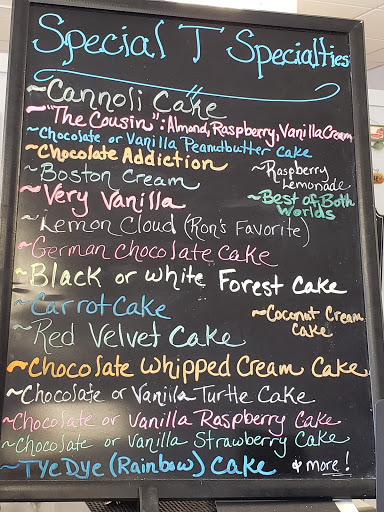 Special T Specialties
~Cannoli Cake
~"The Cousin": Almond, Raspberry, Vanilla Cream
~Chocolate or Vanilla Peanutbutter cake
~Chocolate Addiction
~Raspberry Lemonade
~Boston Cream
~Very Vanilla
~Best of Both Worlds
~Lemon Cloud (Ron's Favorite)
~German Chocolate Cake
~Black or White Forest Cake
~Carrot Cake
~Coconut Cream Cake
~Red Velvet Cake
~Chocolate Whipped Cream Cake
~Chocolate or Vanilla Turtle Cake
~Chocolate or Vanilla Raspberry Cake
~Chocolate or Vanilla Strawberry Cake
~TYe DYe (Rainbow) Cake & more!